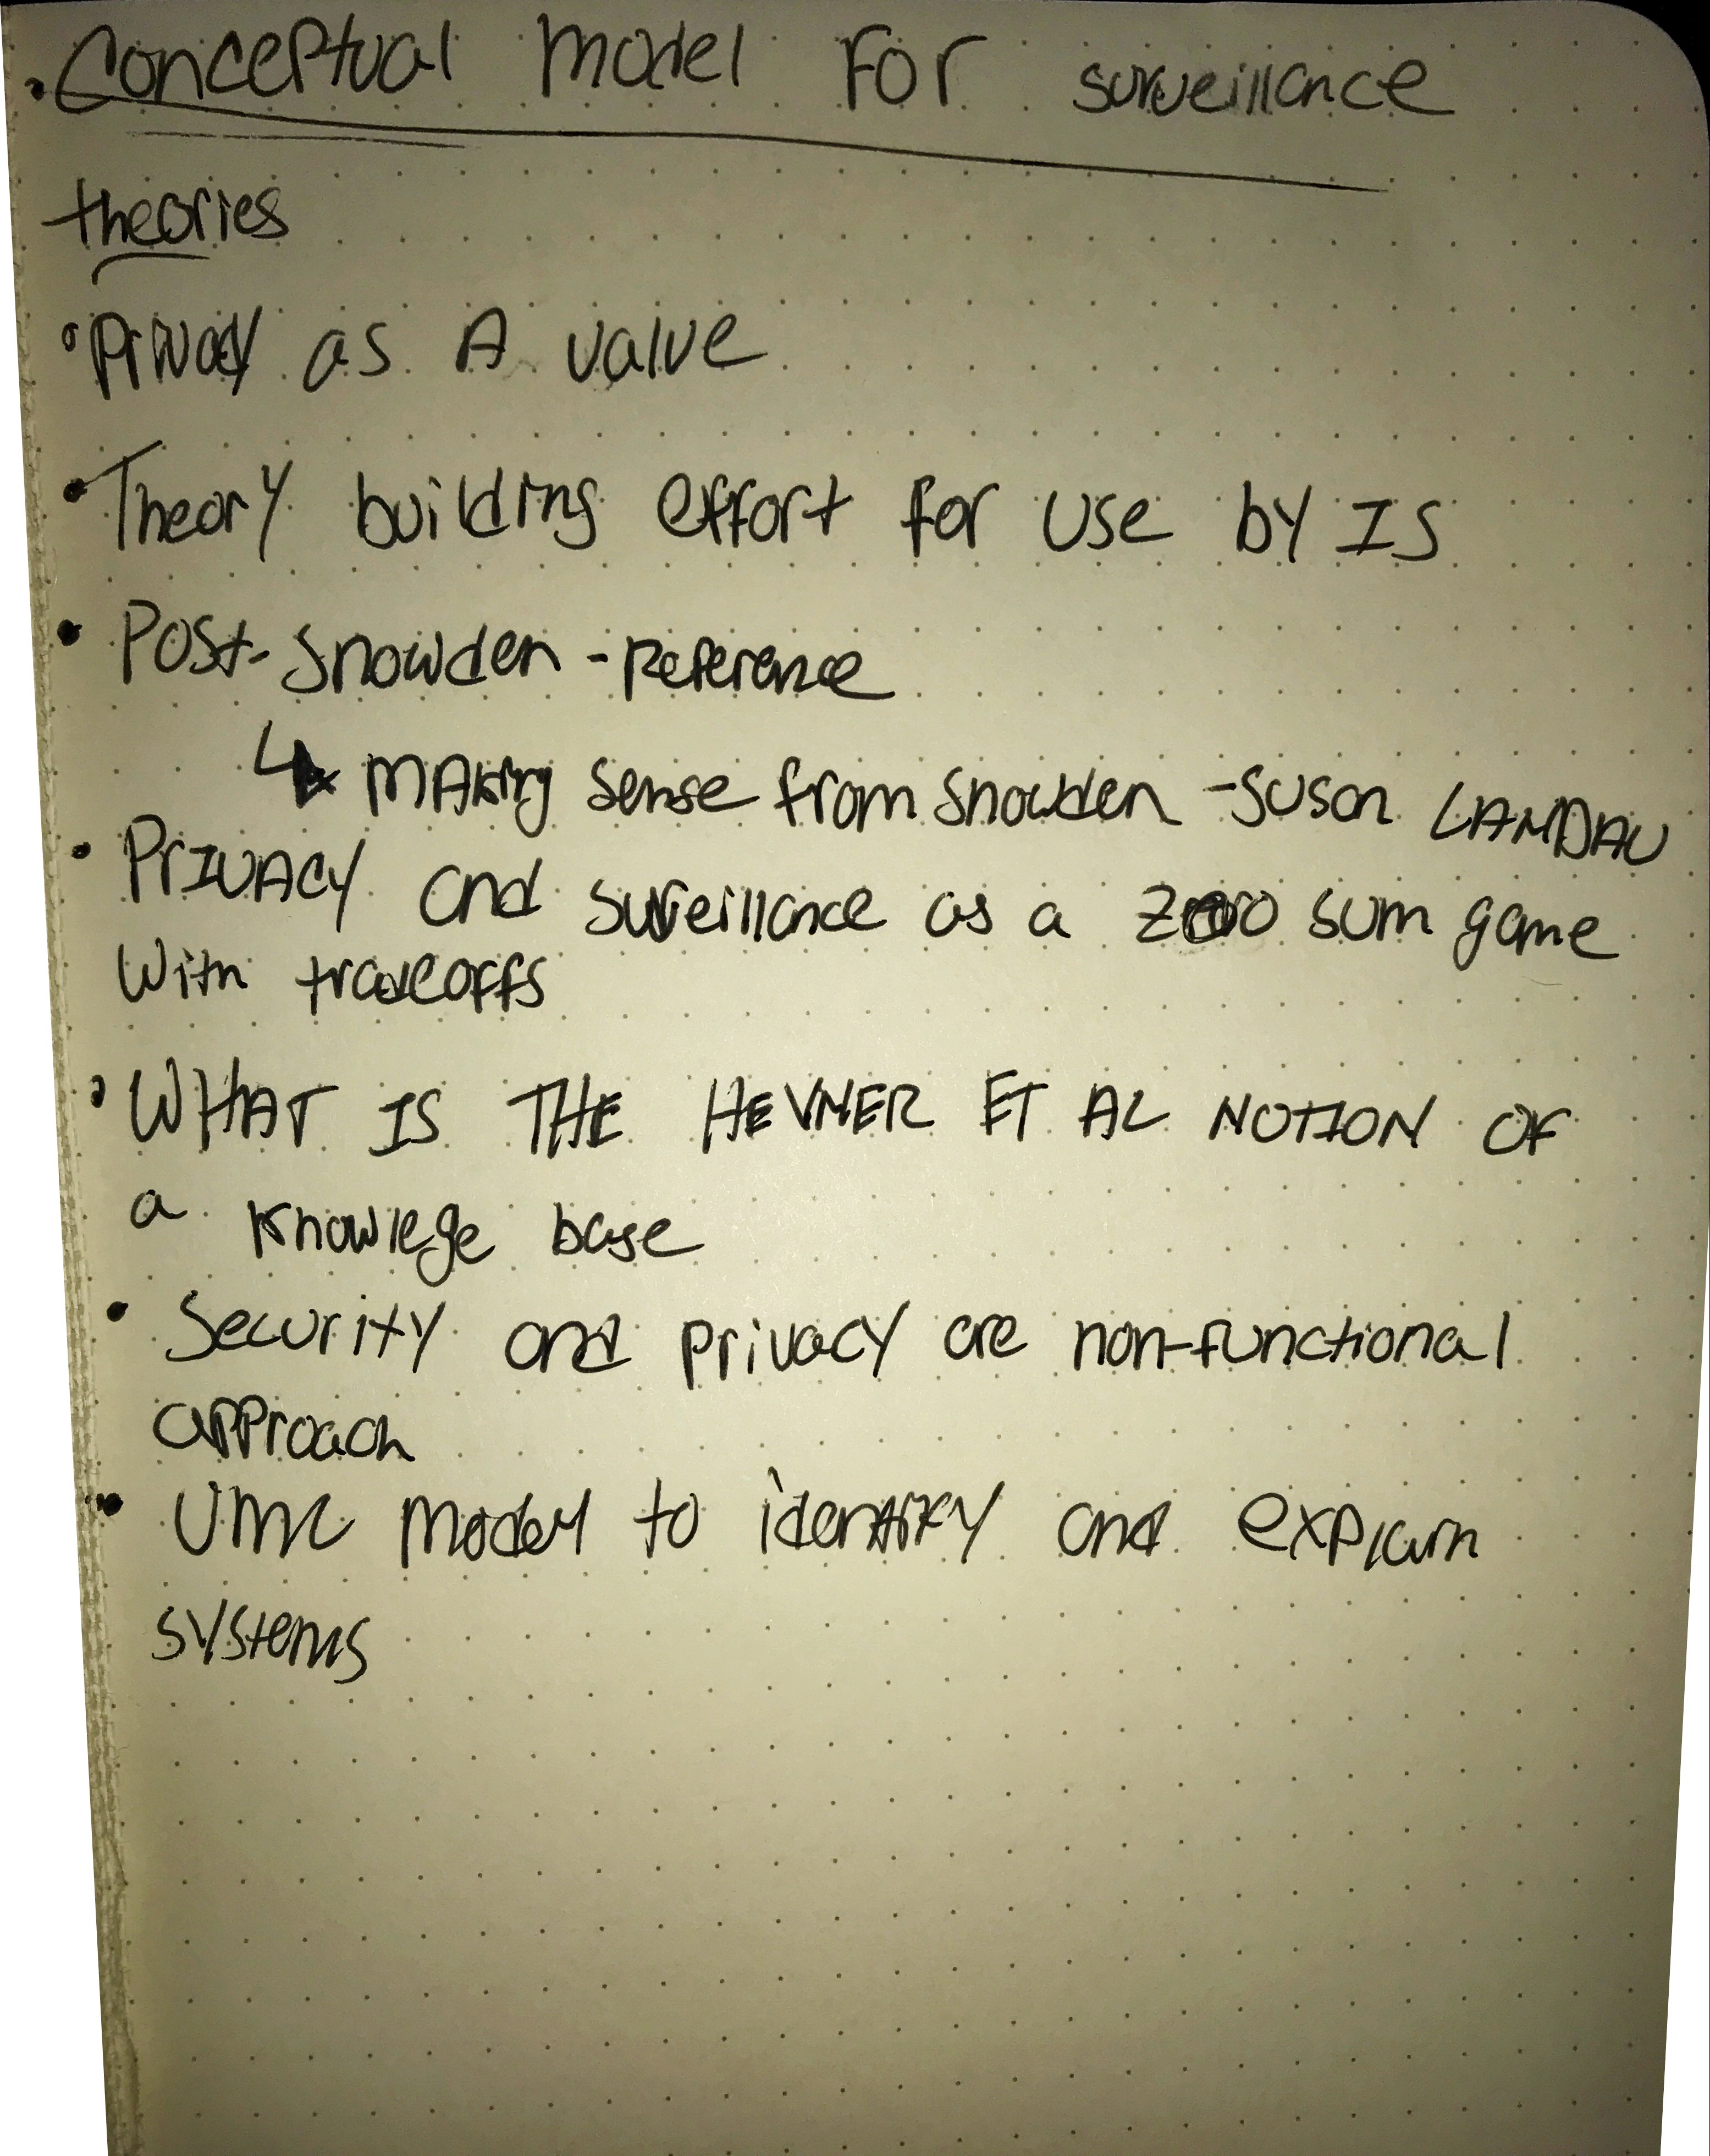 • Conceptual Model For surveillance
theories
• Privacy as A value
• Theory building effort for use by IS
• Post-Snowden - Reference
↳ MAking sense from Snowden - Susan LANDAU
• PRIVACY and surveillance as a zero sum game
With tradeoffs
• WHAT IS THE HEVNER ET AL NOTION OF
a knowlege base
• Security and privacy are non-functional
approach
• UML Model to identify and explain
systems